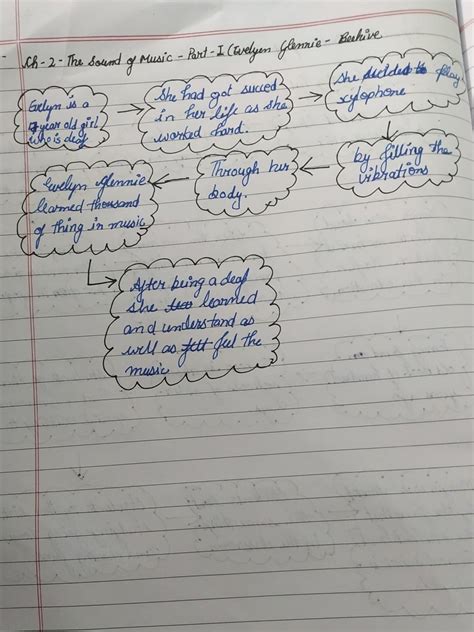 Ch-2-The Sound of Music-Part-I (Evelyen Glennie- Beehive
Evelyn is a
year old girl
who is deaf
She had got succed
in her life as she
worked hard.
She dicided to play
xylophone
by filling the
vibrations
Through her
body.
Evelyn Glennie
learned thousand
of thing in music
After being a deaf
she learned
and understand as
well as feel the
music